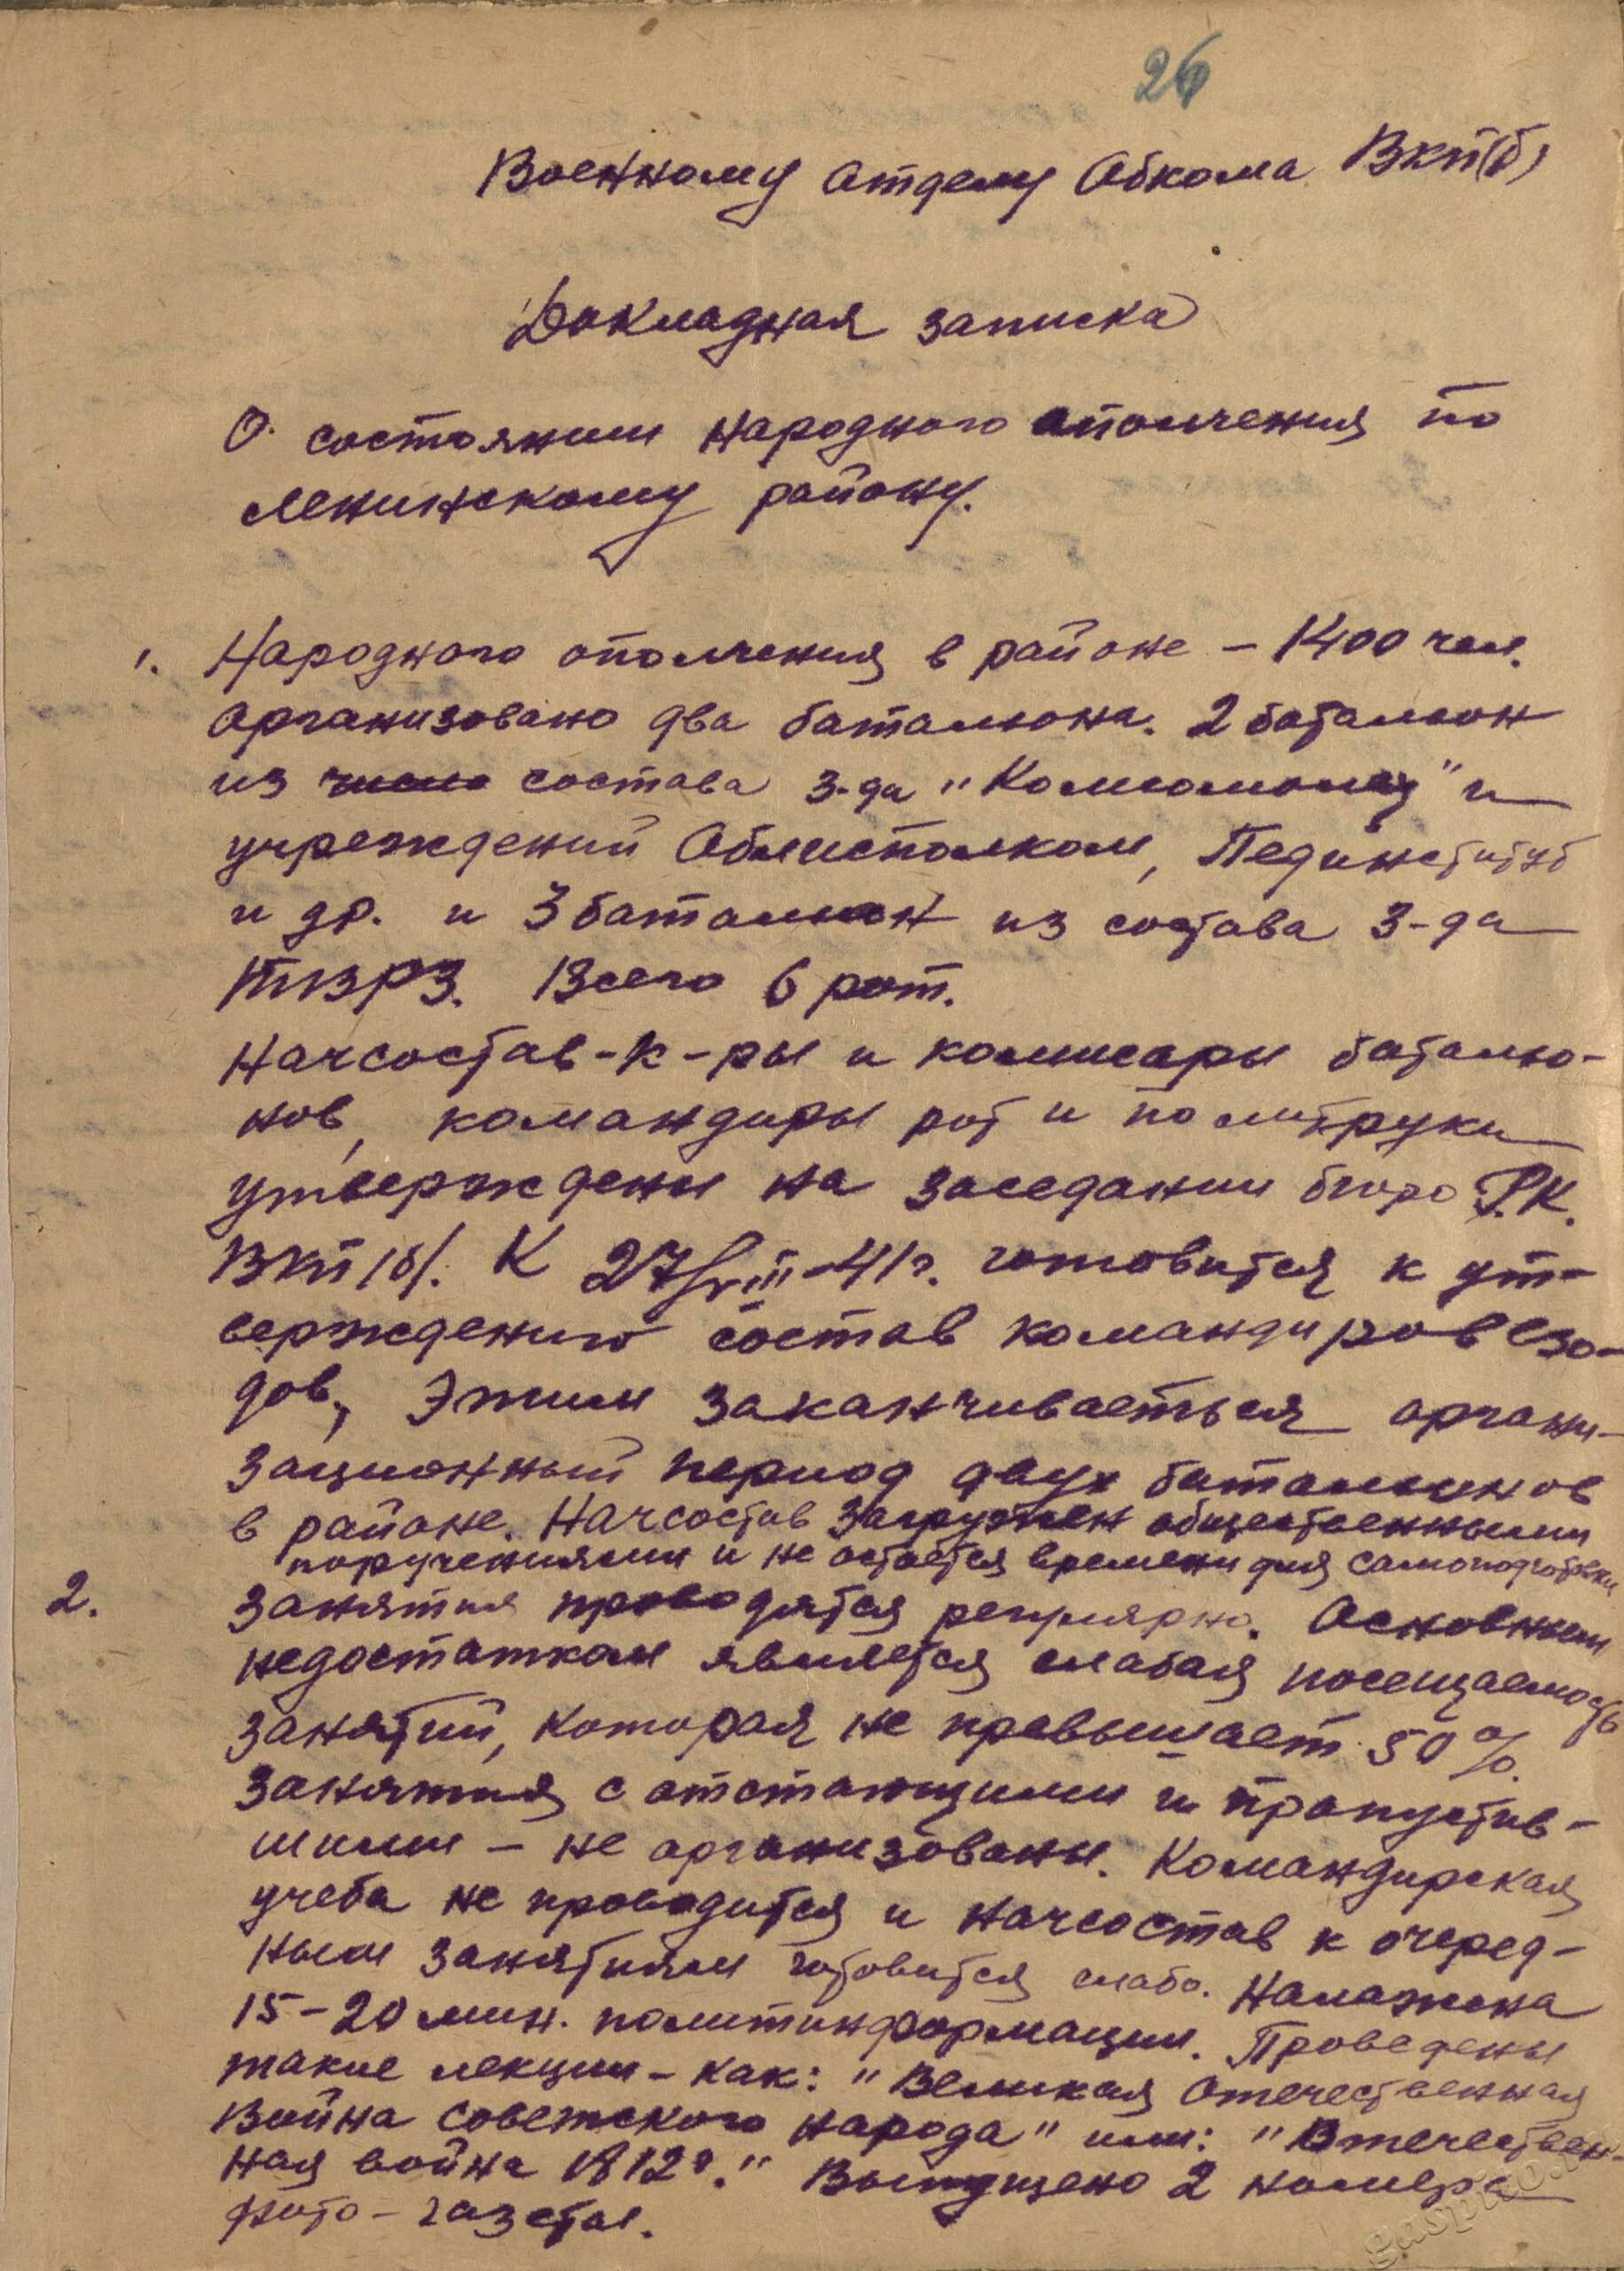 26
Военному Отделу Обкома ВКП(б)
Докладная записка
О состоянии народного ополчения по
Ленинскому району.
1. Народного ополчения в районе – 1400 чел.
Организовано два батальона. 2 батальон
из число состава з-да "Комсомолец" и
учреждений Облисполком, Пединститут
и др. и 3 батальон из состава з-да
ТВРЗ. Всего 6 рот.
Начсостав-к-ры и комиссары батальо-
нов, командиры рот и политруки
утверждены на заседании бюро Р.К.
ВКП/б/. К 27/VIII-41г. готовится к ут-
верждению состав командиров взво-
дов, Этим заканчивается органи-
зационный период двух батальонов
в районе. Начсостав загружен общественными
поручениями и не остается времени для самоподготовки
2. Занятия проводятся регулярно. Основным
недостатком является слабая посещаемость
занятий, которая не превышает 50%.
Занятия с отстающими и пропустив-
шими – не организованы. Командирская
учеба не проводится и начсостав к очеред-
ным занятиям готовится слабо. Налажена
15–20 мин. политинформации. Проведены
такие лекции – как: "Великая Отечественная
Война советского народа" или: "Втечествен-
ная война 1812г." Выпущено 2 номера
фото-газеты.
gaspito.